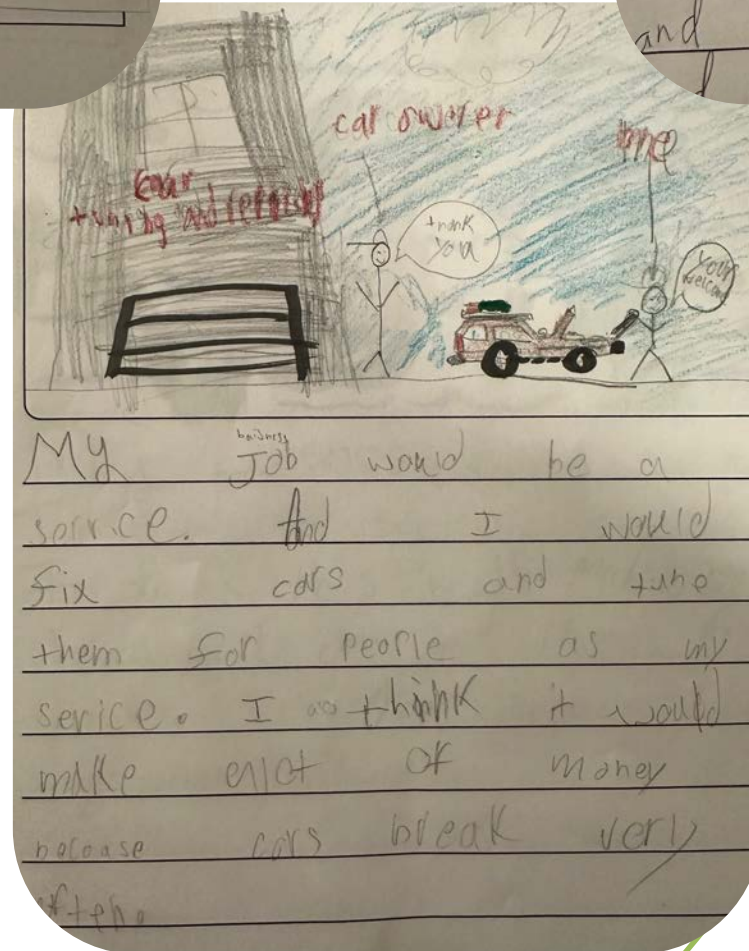 and
car owner
me
tuning and
thank
you
your
welcom
buisness
My Job would be a
sorrice. And I would
fix cars and tune
them for people as my
serice. I think it would
make alot of money
becouse cars break very
often.